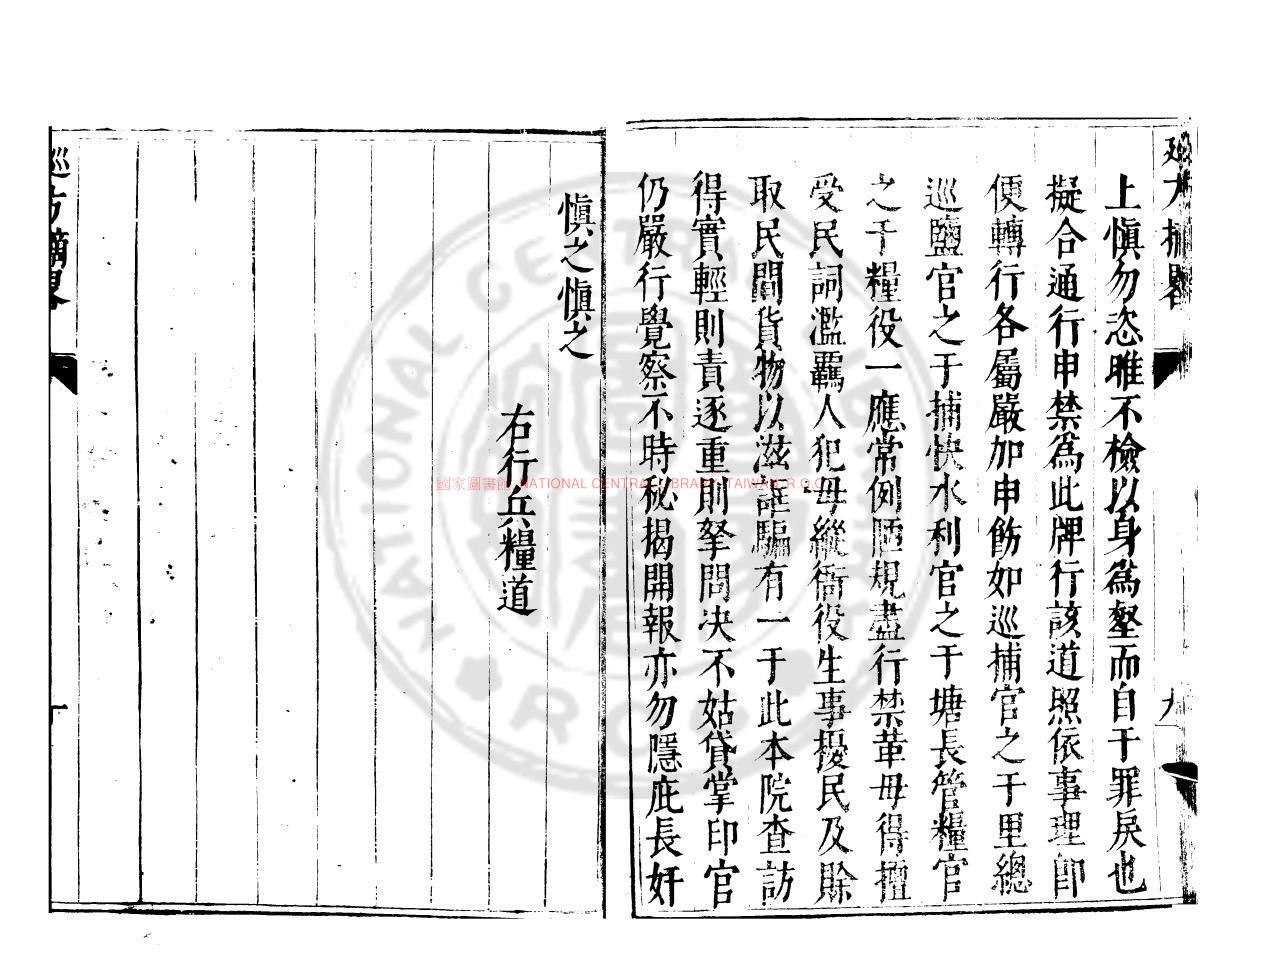 上慎勿恣睢不檢以身爲壑而自干罪戾也
擬合通行申禁爲此牌行該道照依事理即
便轉行各屬嚴加申飭如巡捕官之于里總
巡鹽官之于捕快水利官之于塘長管糧官
之于糧役一應常例陋規盡行禁革毋得擅
受民詞濫羈人犯毋縱衙役生事擾民及賒
取民間貨物以滋誆騙有一于此本院查訪
得實輕則責逐重則拏問决不姑貸掌印官
仍嚴行覺察不時秘揭開報亦勿隱庇長奸
慎之慎之
右行兵糧道
巡方摘畧
國家圖書館 NATIONAL CENTRAL LIBRARY, TAIWAN, R.O.C.
NATIONAL CENTRAL
R.O.C.